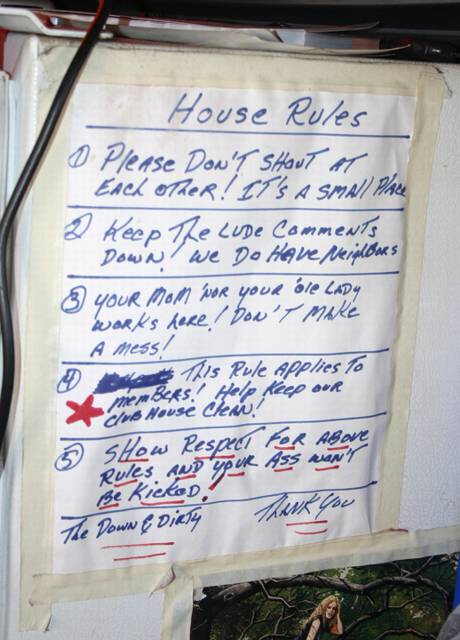 House Rules
① Please Don't Shout at
each other! It's a small place
② Keep the lude comments
down! We do have neighbors
③ your mom 'nor your 'ole lady
works here! Don't make
a mess!
④ This rule applies to
members! Help keep our
club house clean!
⑤ Show respect for above
rules and your ass won't
be kicked!
The Down & Dirty Thank you